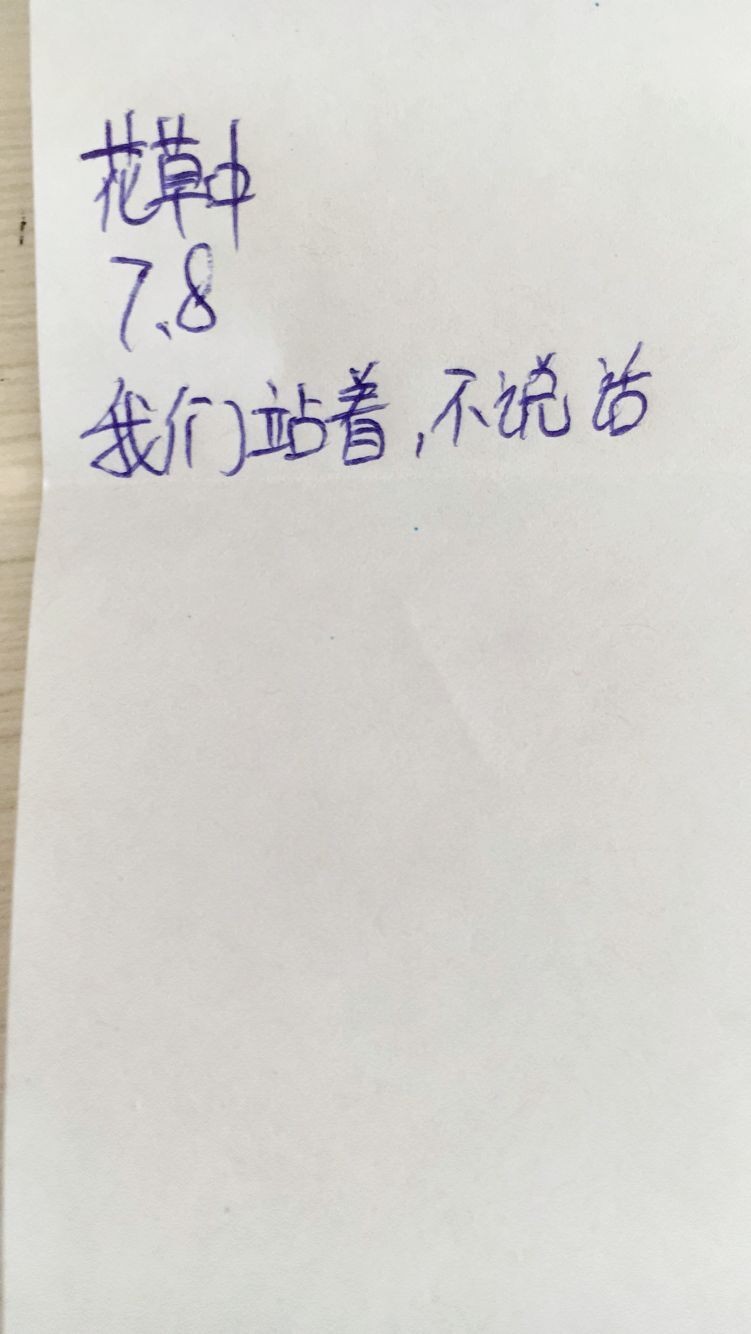 花草中
7.8
我们站着,不说话